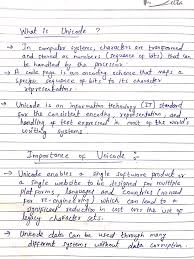 What is Unicode ?
→ In computer systems, characters are transformed
and stored as numbers (sequence of bits) that can
be handled by the processor.
→ A code page is an encoding scheme that maps a
specific sequence of bits to its character
representation.
→ Unicode is an information technology (IT) standard
for the consistent encoding, representation, and
handling of text expressed in most of the world's
writing systems.
Importance of Unicode :-
→ Unicode enables a single software product or
a single website to be designed for multiple
platforms, languages and countries (no need
for re-engineering) which can lead to a
significant reduction in cost over the use of
legacy character sets.
→ Unicode data can be used through many
different systems without data corruption.